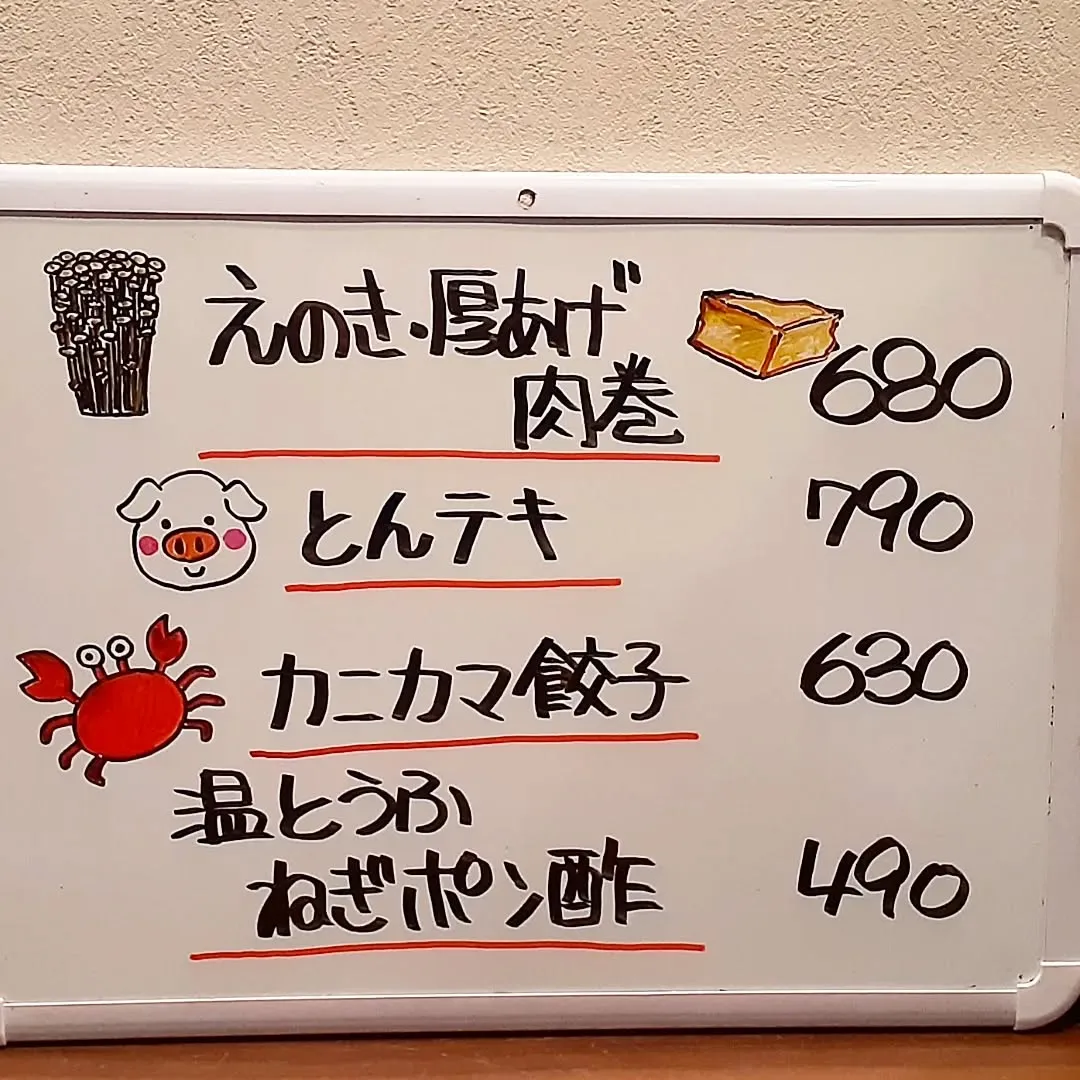 えのき・厚あげ
肉巻 680
とんテキ 790
カニカマ餃子 630
温とうふ
ねぎポン酢 490